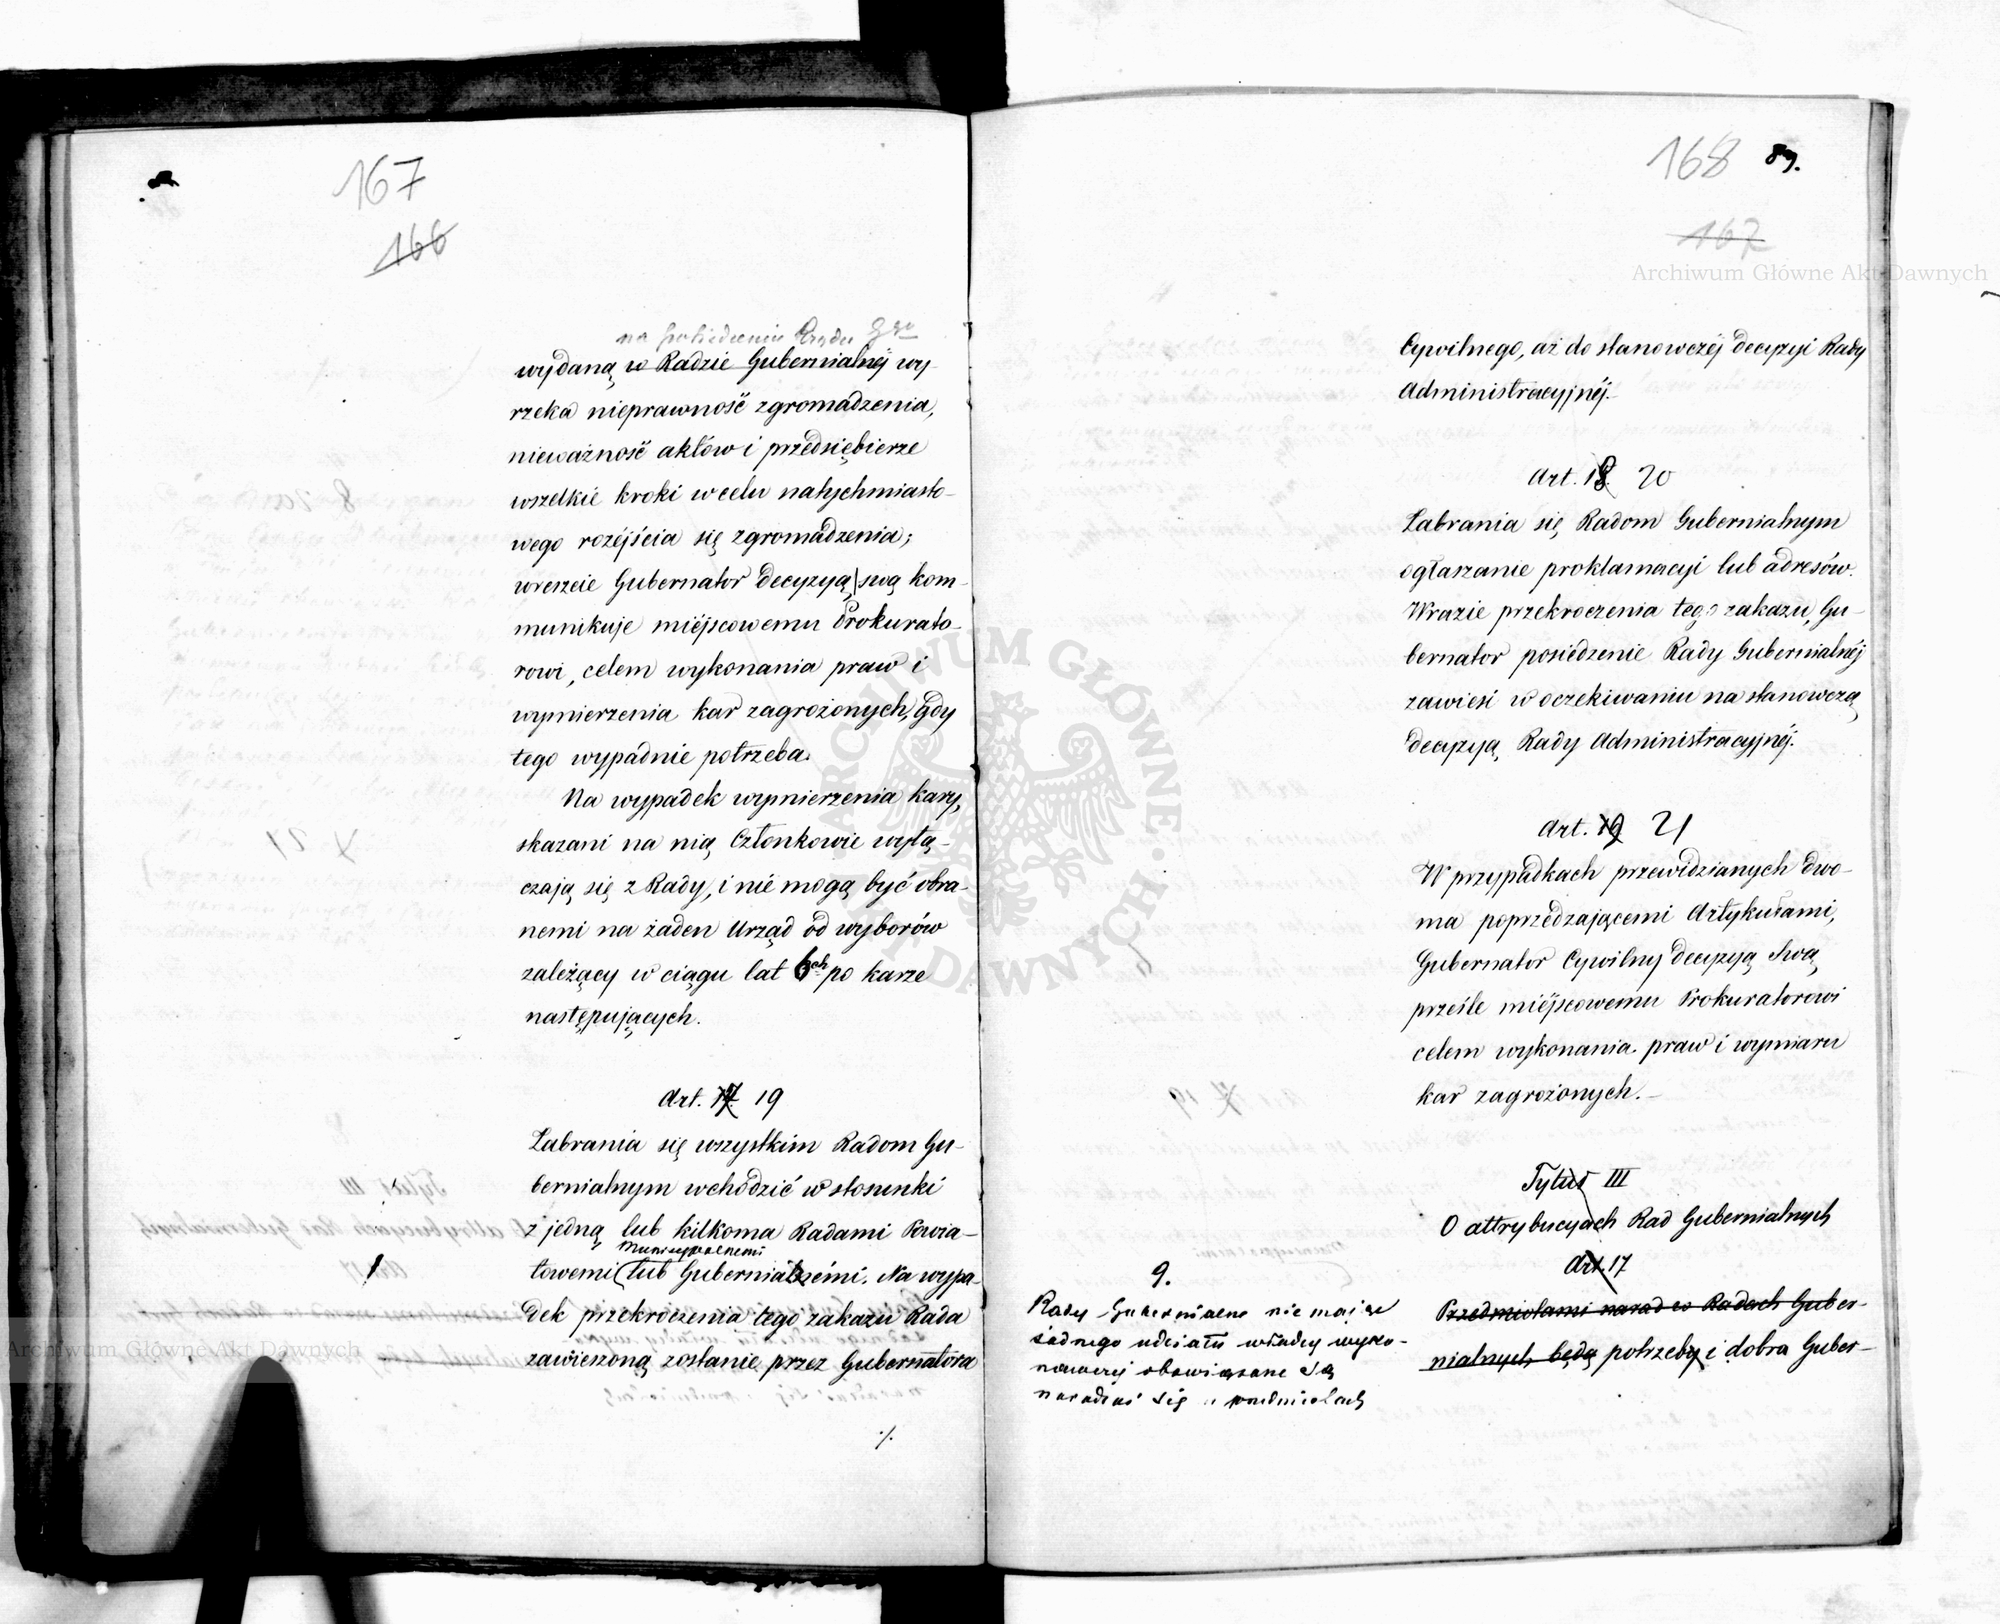 167
166
na posiedzeniu Rządu Ggo
wydaną w Radzie Gubernialnéj wy-
rzeka nieprawność zgromadzenia,
nieważność aktów i przedsiębierze
wszelkie kroki w celu natychmiasto-
wego rozéjścia się zgromadzenia;
wreszcie Gubernator decyzyą swą kom-
munikuje miéjscowemu Prokurato-
rowi, celem wykonania praw i
wymierzenia kar zagrożonych, gdy
tego wypadnie potrzeba.
Na wypadek wymierzenia kary,
skazani na nią Członkowie wyłą-
czają się z Rady, i nie mogą być obra-
nemi na żaden Urząd od wyborów
zależący w ciągu lat 6ch po karze
następujących.
Art. 17 19
Zabrania się wszystkim Radom Gu-
bernialnym wchodzić w stosunki
z jedną lub kilkoma Radami Powia-
Municypalnemi
towemi lub Gubernialnémi. Na wypa-
dek przekroczenia tego zakazu Rada
zawieszoną zostanie przez Gubernatora
./.
168 89.
167
Cywilnego, aż do stanowczéj decyzyi Rady
Administracyjnéj.
Art. 18 20
Zabrania się Radom Gubernialnym
ogłaszanie proklamacyi lub adresów.
W razie przekroczenia tego zakazu, Gu-
bernator posiedzenie Rady Gubernialnéj
zawiesi w oczekiwaniu na stanowczą
decyzyą Rady Administracyjnéj.
Art. 19 21
W przypadkach przewidzianych dwo-
ma poprzedzającemi Artykułami,
Gubernator Cywilny decyzyą Swą
prześle miéjscowemu Prokuratorowi
celem wykonania praw i wymiaru
kar zagrożonych.-
Tytuł III
O attrybucyach Rad Gubernialnych
Art. 17
Przedmiotami narad w Radach Guber-
nialnych będą potrzeby i dobra Guber-
9.
Rady Gubernialne nie mając
żadnego udziału władzy wyko-
nawczej obowiązane są
naradzać się o przedmiotach
Archiwum Główne Akt Dawnych
Archiwum Główne Akt Dawnych
ARCHIWUM GŁÓWNE AKT DAWNYCH